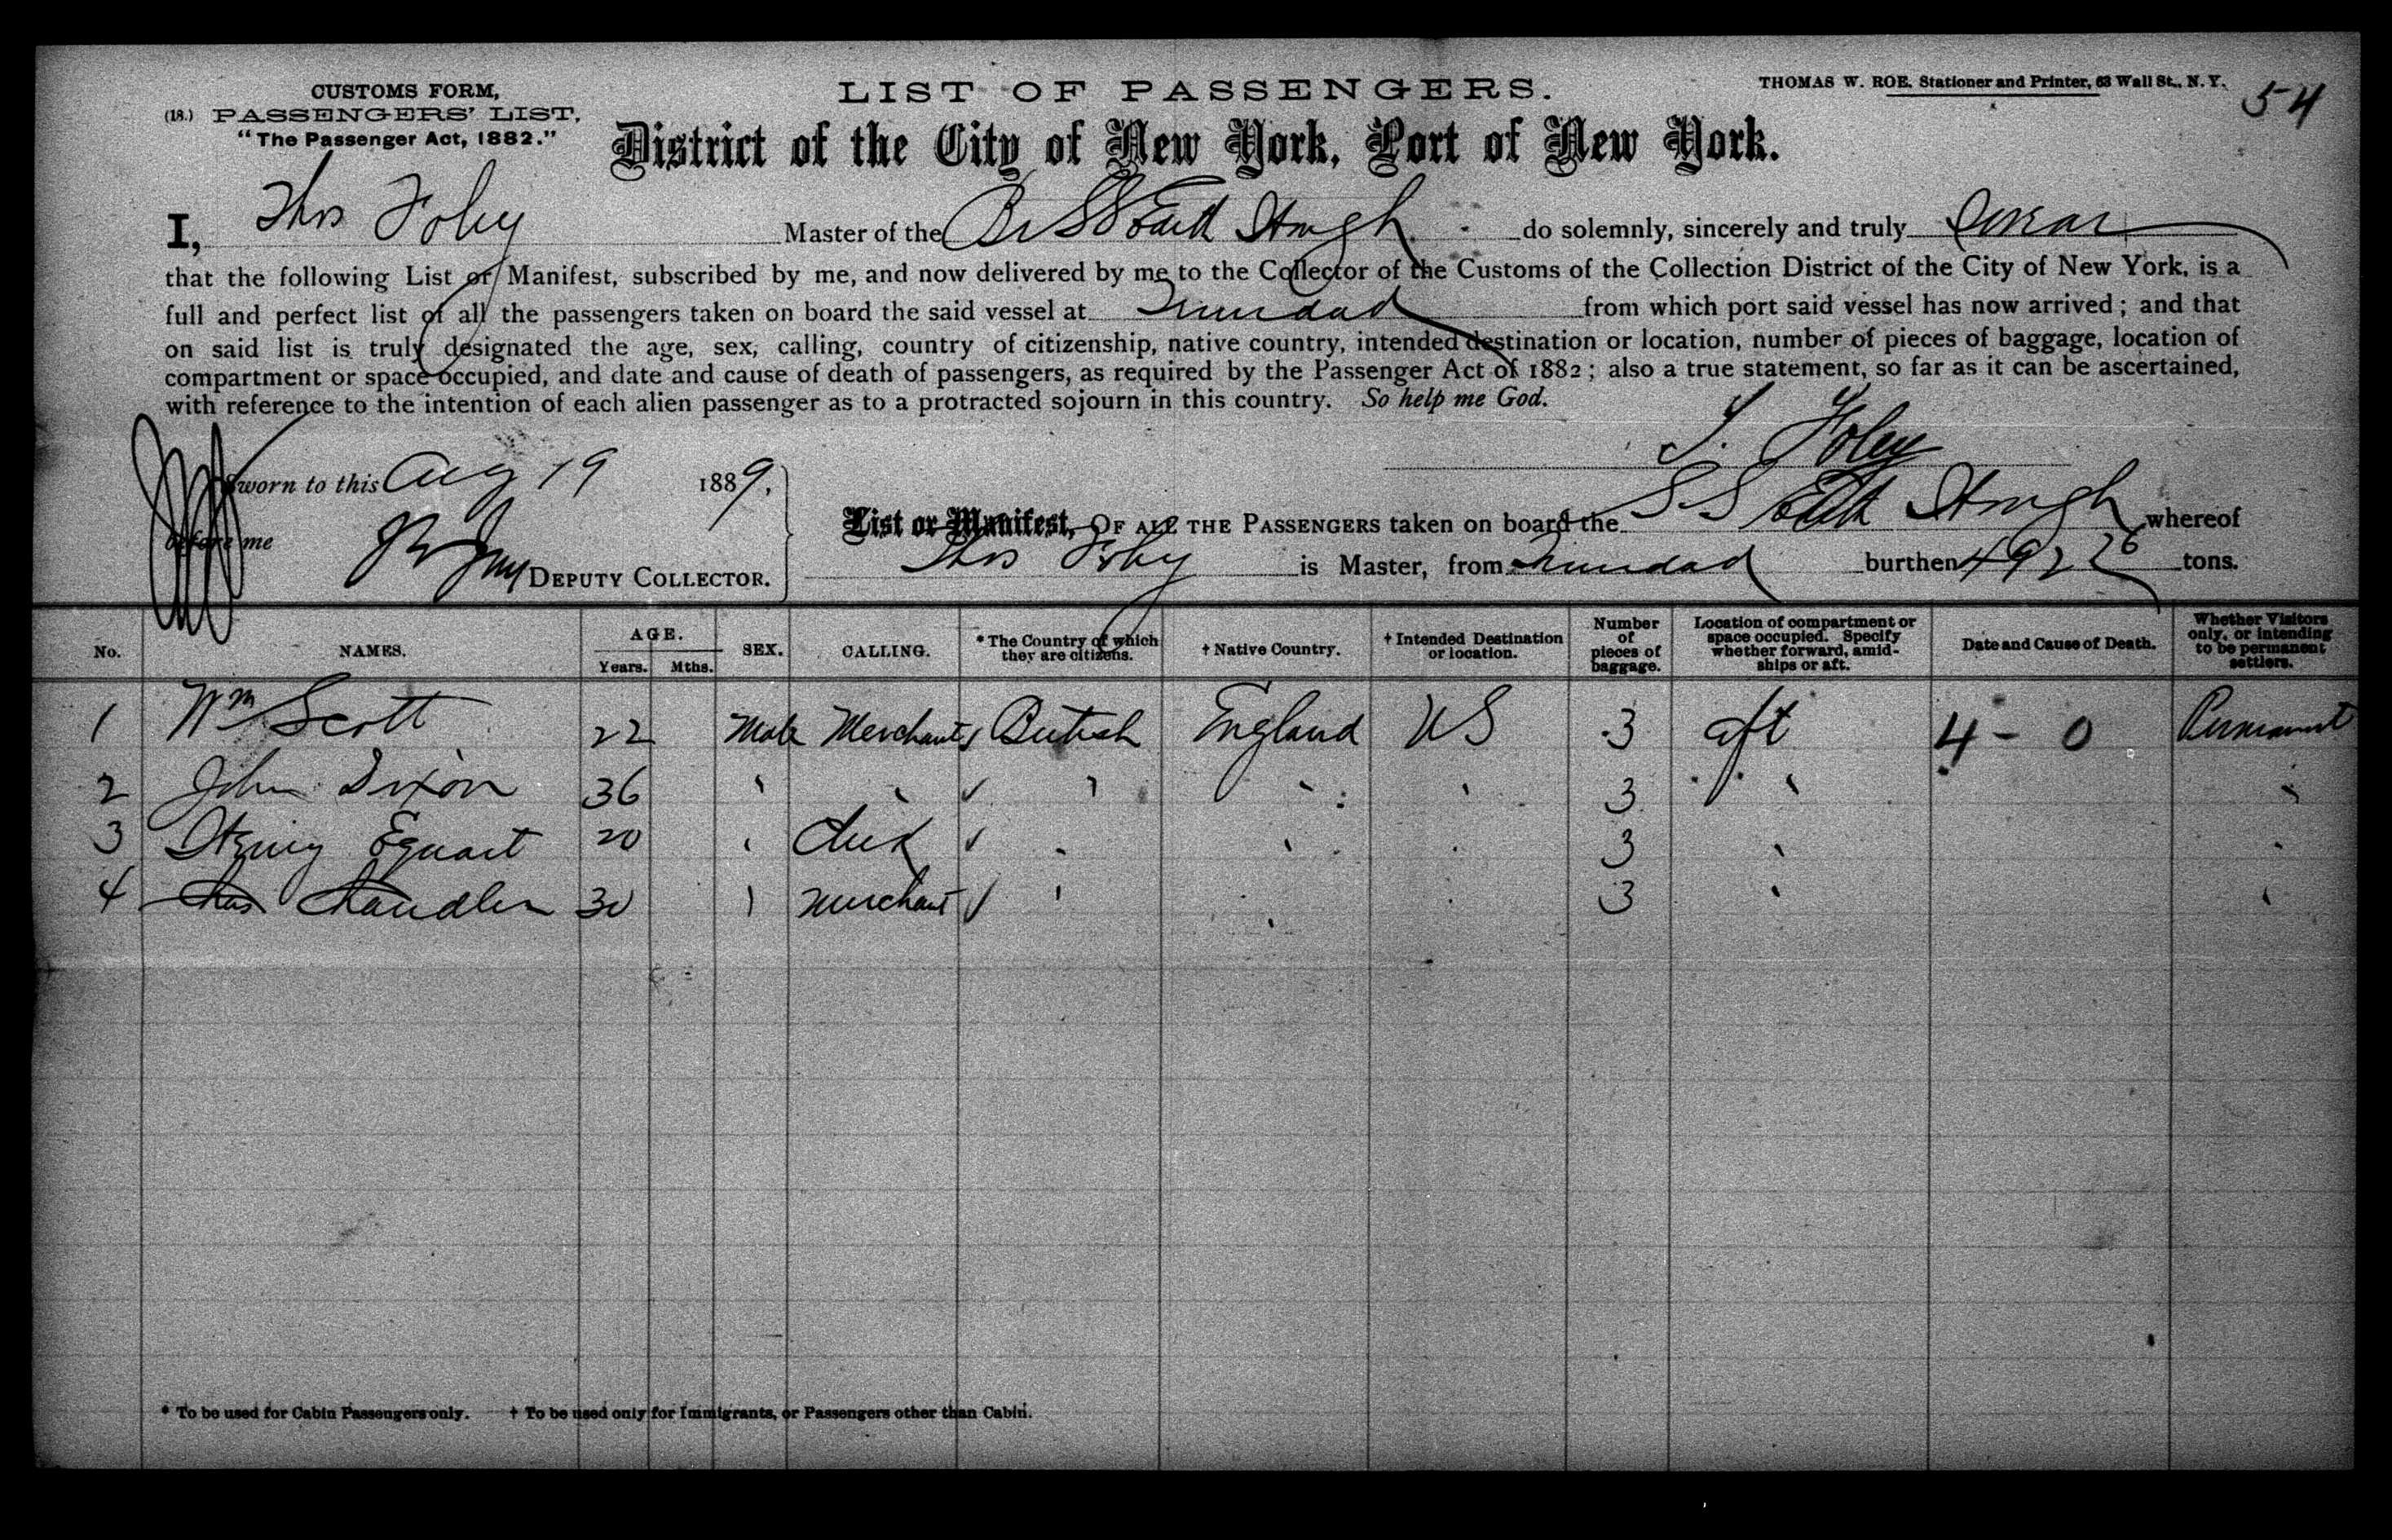 CUSTOMS FORM,
(18.) PASSENGERS' LIST,
"The Passenger Act, 1882."
LIST OF PASSENGERS.
THOMAS W. ROE, Stationer and Printer, 63 Wall St., N. Y.
54
District of the City of New York, Port of New York.
I, Thos Foley Master of the Br SS do solemnly, sincerely and truly swear
that the following List or Manifest, subscribed by me, and now delivered by me to the Collector of the Customs of the Collection District of the City of New York, is a
full and perfect list of all the passengers taken on board the said vessel at Trinidad from which port said vessel has now arrived; and that
on said list is truly designated the age, sex, calling, country of citizenship, native country, intended destination or location, number of pieces of baggage, location of
compartment or space occupied, and date and cause of death of passengers, as required by the Passenger Act of 1882; also a true statement, so far as it can be ascertained,
with reference to the intention of each alien passenger as to a protracted sojourn in this country. So help me God.
T. Foley
Sworn to this Aug 19 1889,
before me
DEPUTY COLLECTOR.
List or Manifest, OF ALL THE PASSENGERS taken on board the SS whereof
Thos Foley is Master, from Trinidad burthen 492 26 tons.
No. NAMES. AGE. Years. Mths. SEX. CALLING. * The Country of which they are citizens. † Native Country. † Intended Destination or location. Number of pieces of baggage. Location of compartment or space occupied. Specify whether forward, amidships or aft. Date and Cause of Death. Whether Visitors only, or intending to be permanent settlers.
1 Wm Scott 22 Male Merchant British England US 3 aft 4 - 0 Permanent
2 John Dixon 36 " " ✓ " " " 3 " "
3 20 " Clerk ✓ " " " 3 " "
4 Chas Chandler 30 " Merchant ✓ " " " 3 " "
* To be used for Cabin Passengers only. † To be used only for Immigrants, or Passengers other than Cabin.